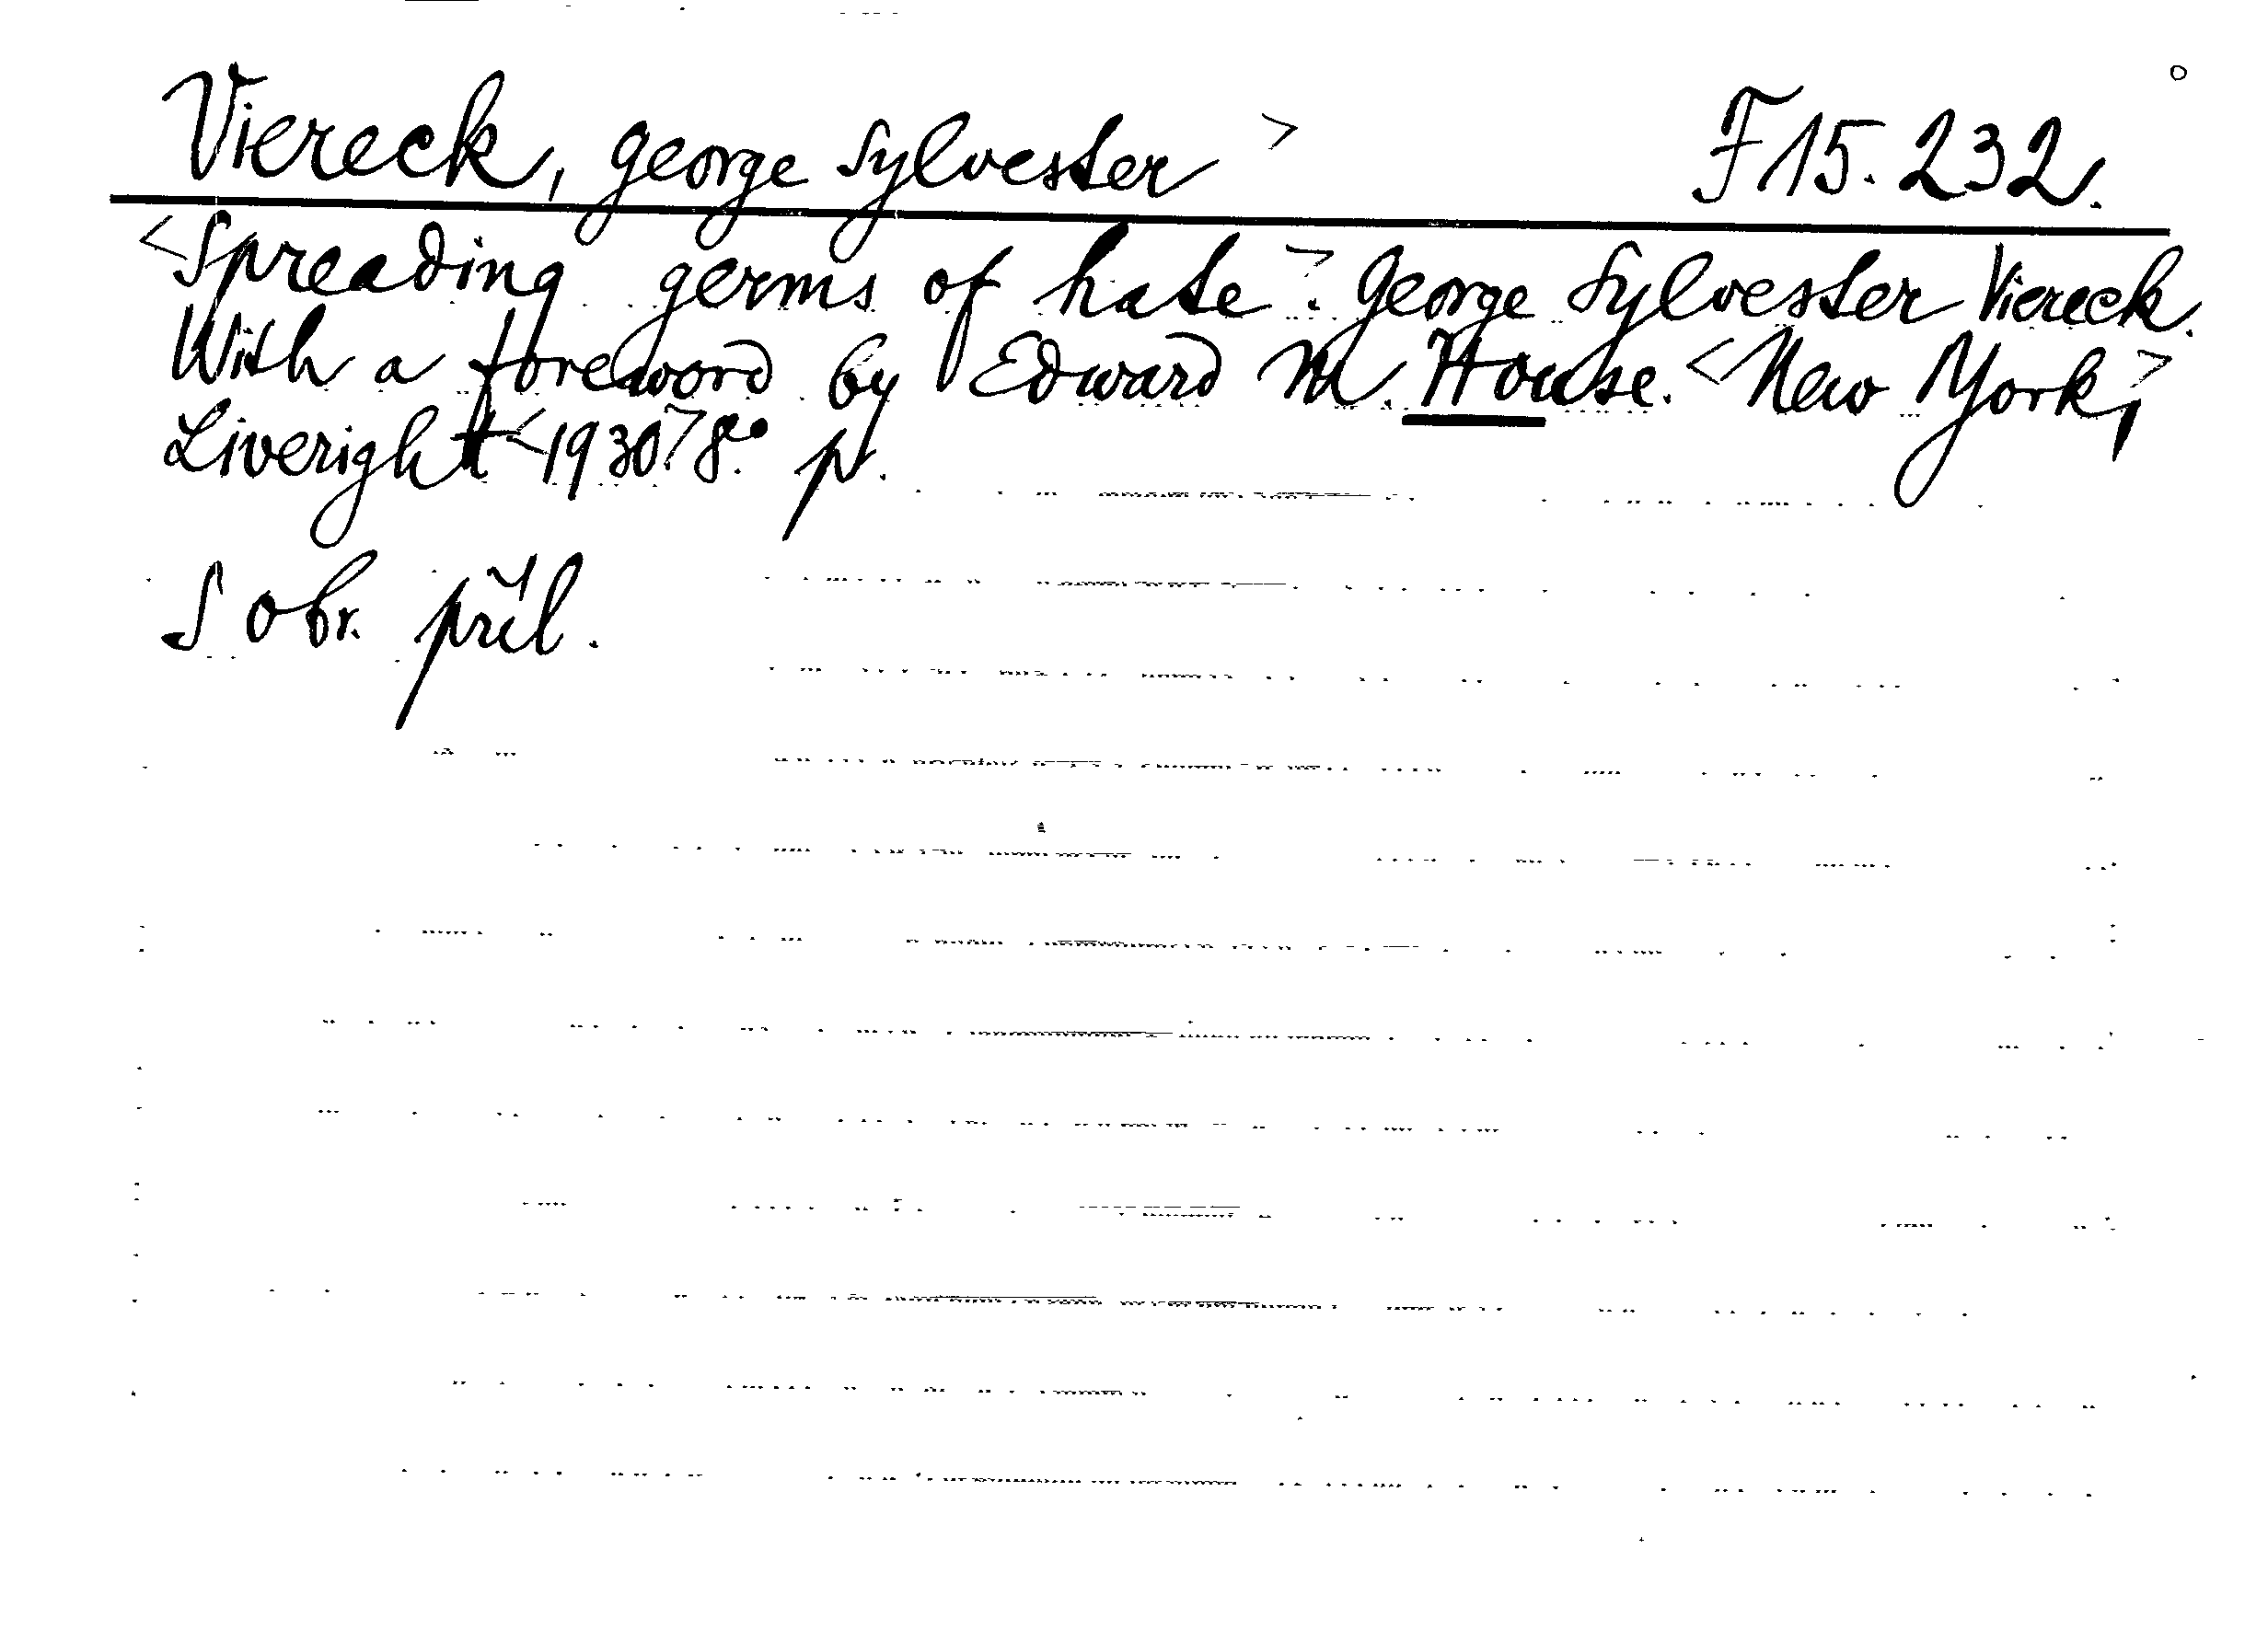 Viereck, George Sylvester > F 15.232.
<Spreading germs of hate>. George Sylvester Viereck.
With a foreword by Edward M. House. <New York,>
Liveright <1930.> 8.° p.
S obr. příl.